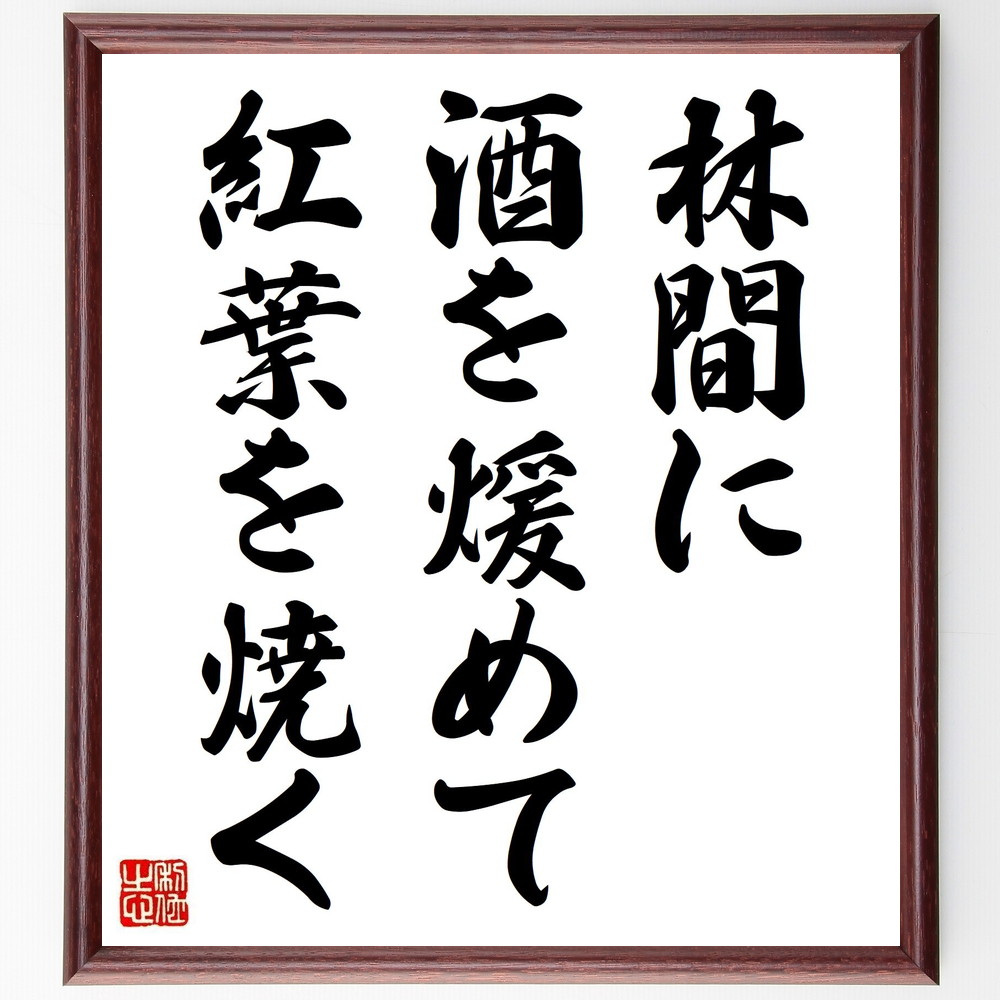 林間に
酒を煖めて
紅葉を焼く